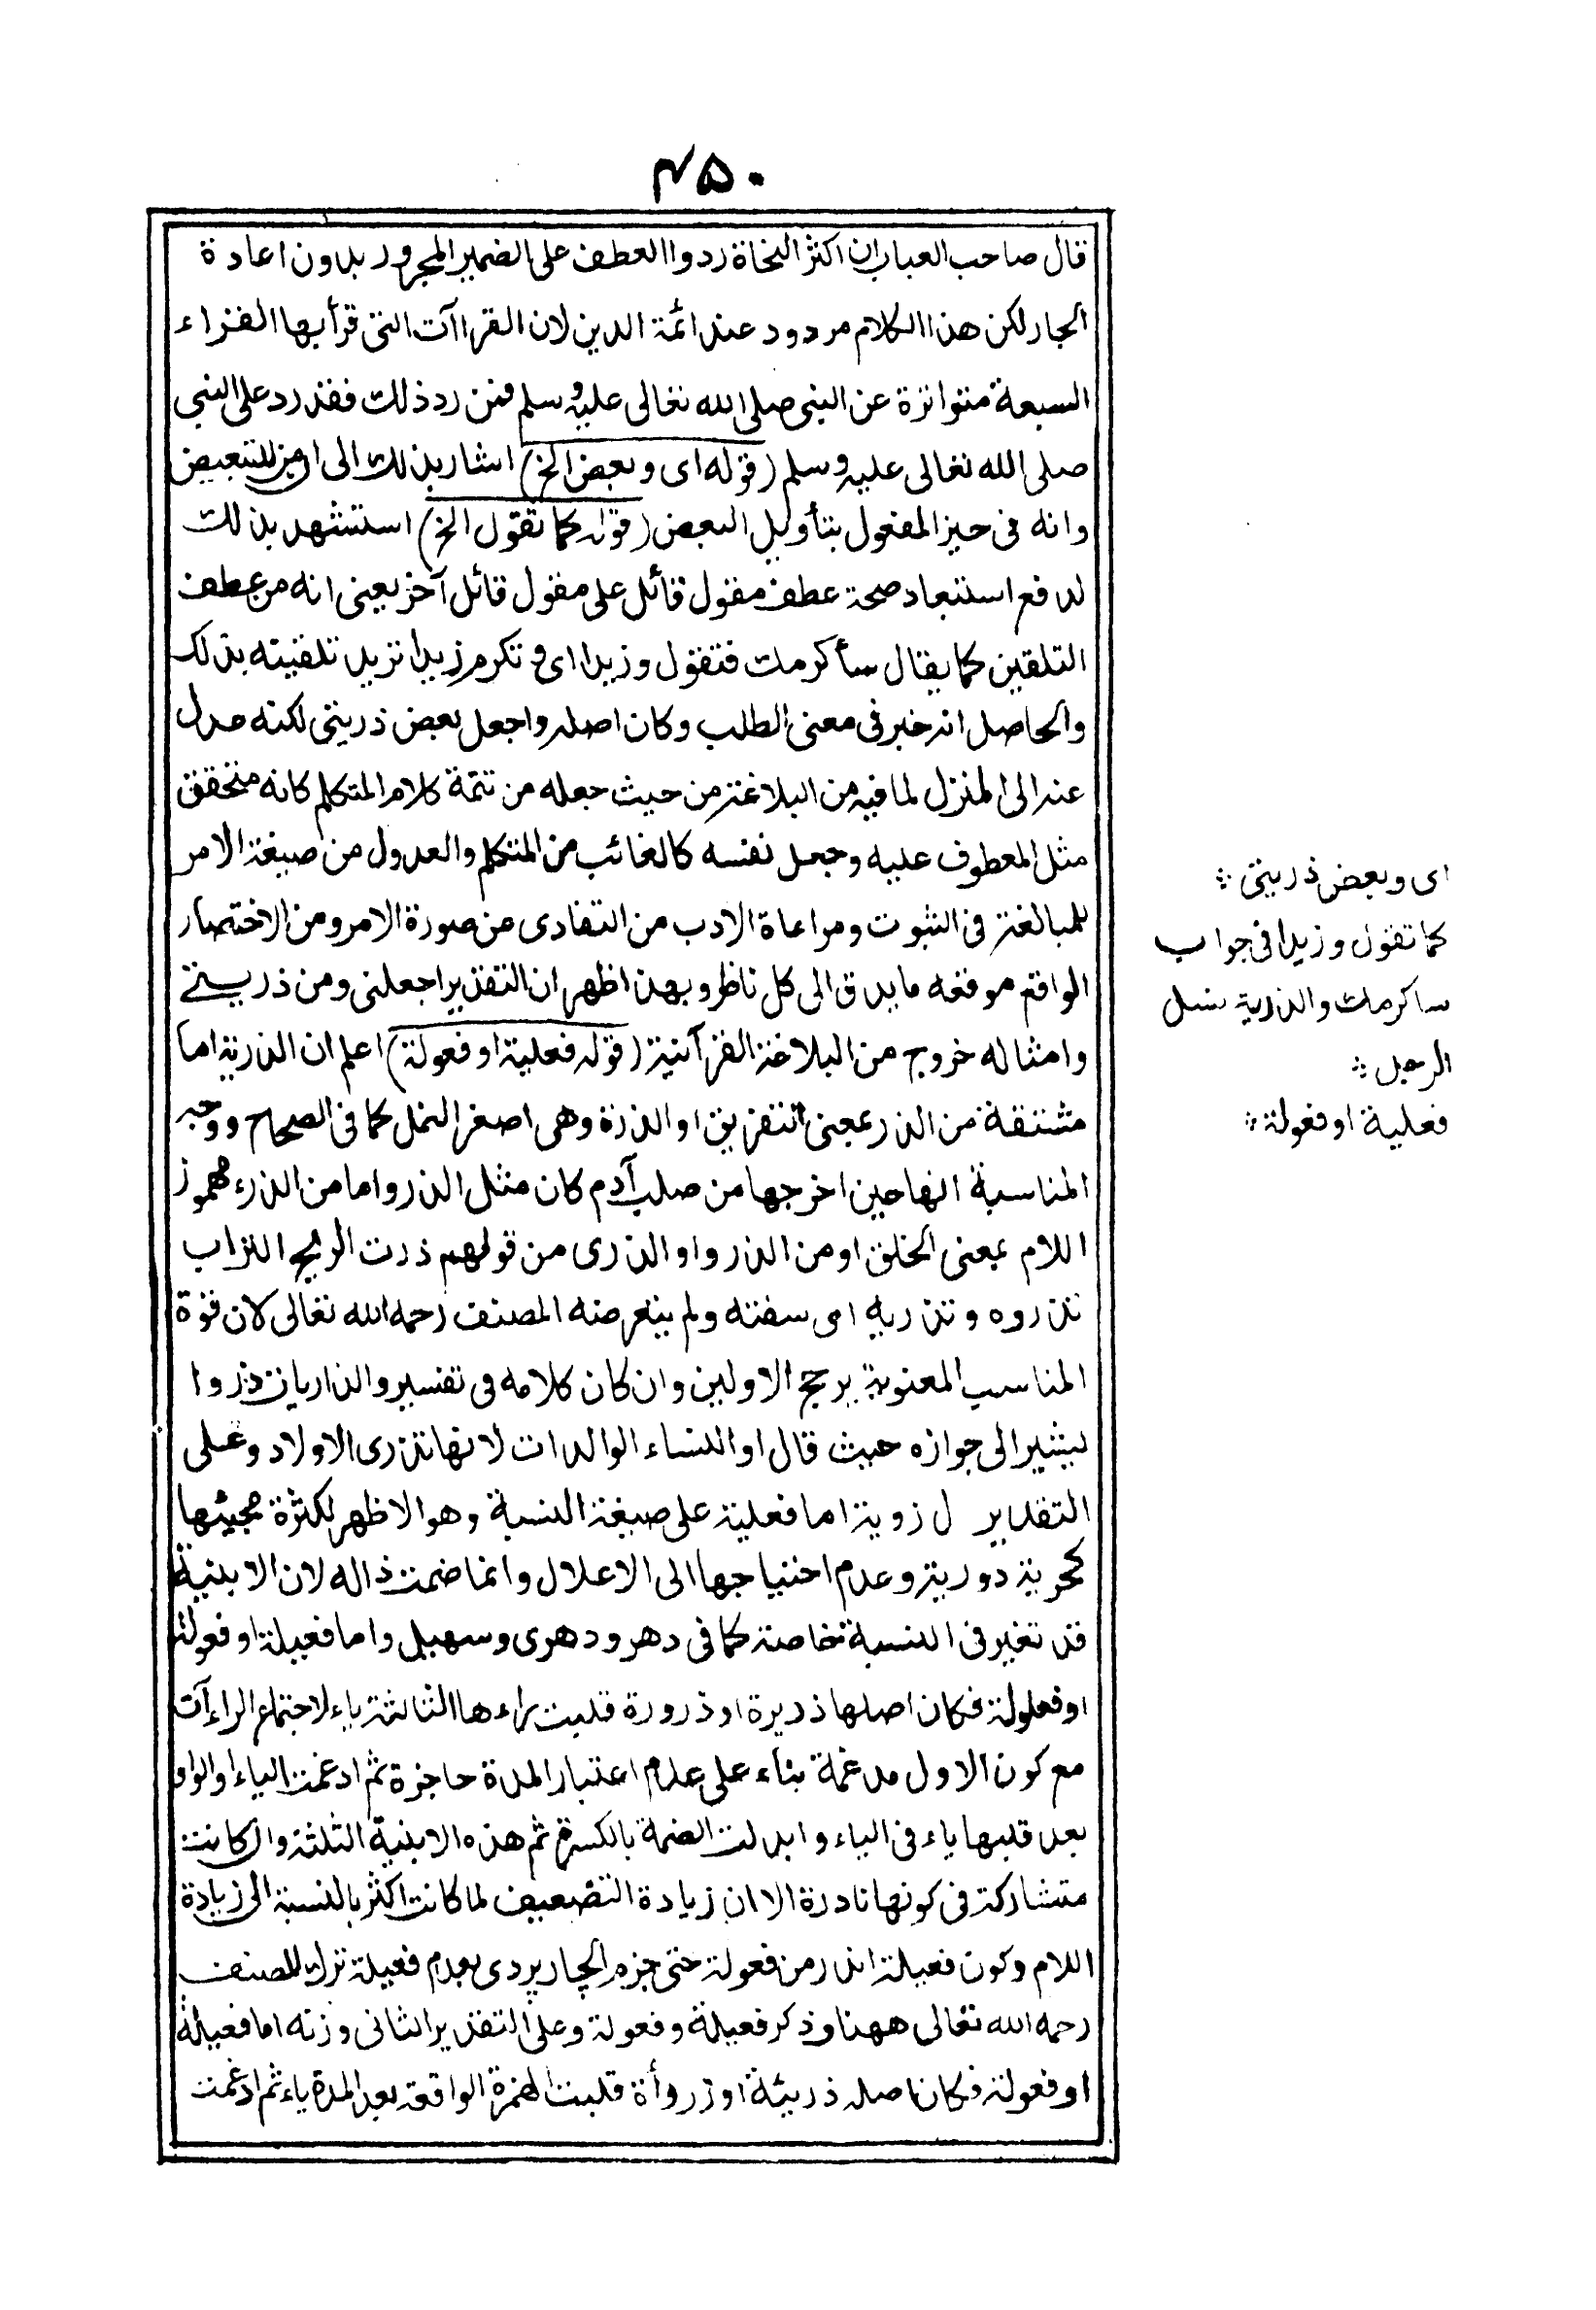 ۴۵۰
قال صاحب العباب ان اكثر النحاة ردوا العطف على الضمير المجرور بدون اعادة
الجار لكن هذا الكلام مردود عند ائمة الدين لان القراآت التى قرأ بها القراء
السبعة متواترة عن النبى صلى الله تعالى عليه وسلم فمن رد ذلك فقد رد على النبى
صلى الله تعالى عليه وسلم (قوله اى وبعض الخ) اشار بذلك الى ان من للتبعيض
وانه فى حيز المفعول بتأويل البعض (قوله كما تقول الخ) استشهد بذلك
لدفع استبعاد صحة عطف مقول قائل على مقول قائل آخر يعنى انه من عطف
التلقين كما يقال سأكرمك فتقول وزيدا اى وتكرم زيدا تريد تلقينه بذلك
والحاصل انه خبر فى معنى الطلب وكان اصله واجعل بعض ذريتى لكنه عدل
عنه الى المنزل لما فيه من البلاغة من حيث جعله من تتمة كلام المتكلم كانه متحقق
مثل المعطوف عليه وجعل نفسه كالغائب من المتكلم والعدول من صيغة الامر
للمبالغة فى الثبوت ومراعاة الادب من التفادى من صورة الامر ومن الاختصار
الواقع موقعه ما يدق الى كل ناظر وبهذا ظهر ان التقدير اجعلنى ومن ذريتى
وامثاله خروج من البلاغة القرآنية (قوله فعلية او فعولة) اعلم ان الذرية اما
مشتقة من الذر بمعنى التفريق او الذرة وهى اصغر النمل كما فى الصحاح ووجه
المناسبة انها حين اخرجها من صلب آدم كان مثل الذر واما من الذرء مهموز
اللام بمعنى الخلق او من الذرو او الذرى من قولهم ذرت الريح التراب
تذروه وتذريه اى سفته ولم يتعرضه المصنف رحمه الله تعالى لان قوة
المناسب المعنوية يرجح الاولين وان كان كلامه فى تفسير والذاريات ذروا
يشير الى جوازه حيث قال او النساء الوالدات لانها تذرى الاولاد وعلى
التقدير ل زوية اما فعلية على صيغة النسبة وهو الاظهر لكثرة مجيئها
كحرية دورية وعدم احتياجها الى الاعلال وانما ضمت ذاله لان الابنية
قد تغير فى النسبة خاصة كما فى دهر ودهرى وسهيل واما فعيلة او فعولة
او فعلولة فكان اصلها ذريرة او ذرورة قلبت راءها الثالثة ياء لاجتماع الراءآت
مع كون الاول مدغمة بناء على عدم اعتبار المدة حاجزة ثم ادغمت الياء او الواو
بعد قلبها ياء فى الياء وابدلت الضمة بالكسرة ثم هذه الابنية الثلثة وان كانت
متشاركة فى كونها نادرة الا ان زيادة التضعيف لما كانت اكثر بالنسبة الى زيادة
اللام وكون فعيلة اندر من فعولة حتى جزم الجاربردى بعدم فعيلة ترك المصنف
رحمه الله تعالى ههنا وذكر فعيلة وفعولة وعلى التقدير الثانى وزنه اما فعيلة
او فعولة فكان اصله ذريئة او ذروأة قلبت الهمزة الواقعة بعد المدة ياء ثم ادغمت
اى وبعض ذريتى
كما تقول وزيدا فى جواب
ساكرمك والذرية نسل
الرجل
فعلية او فعولة